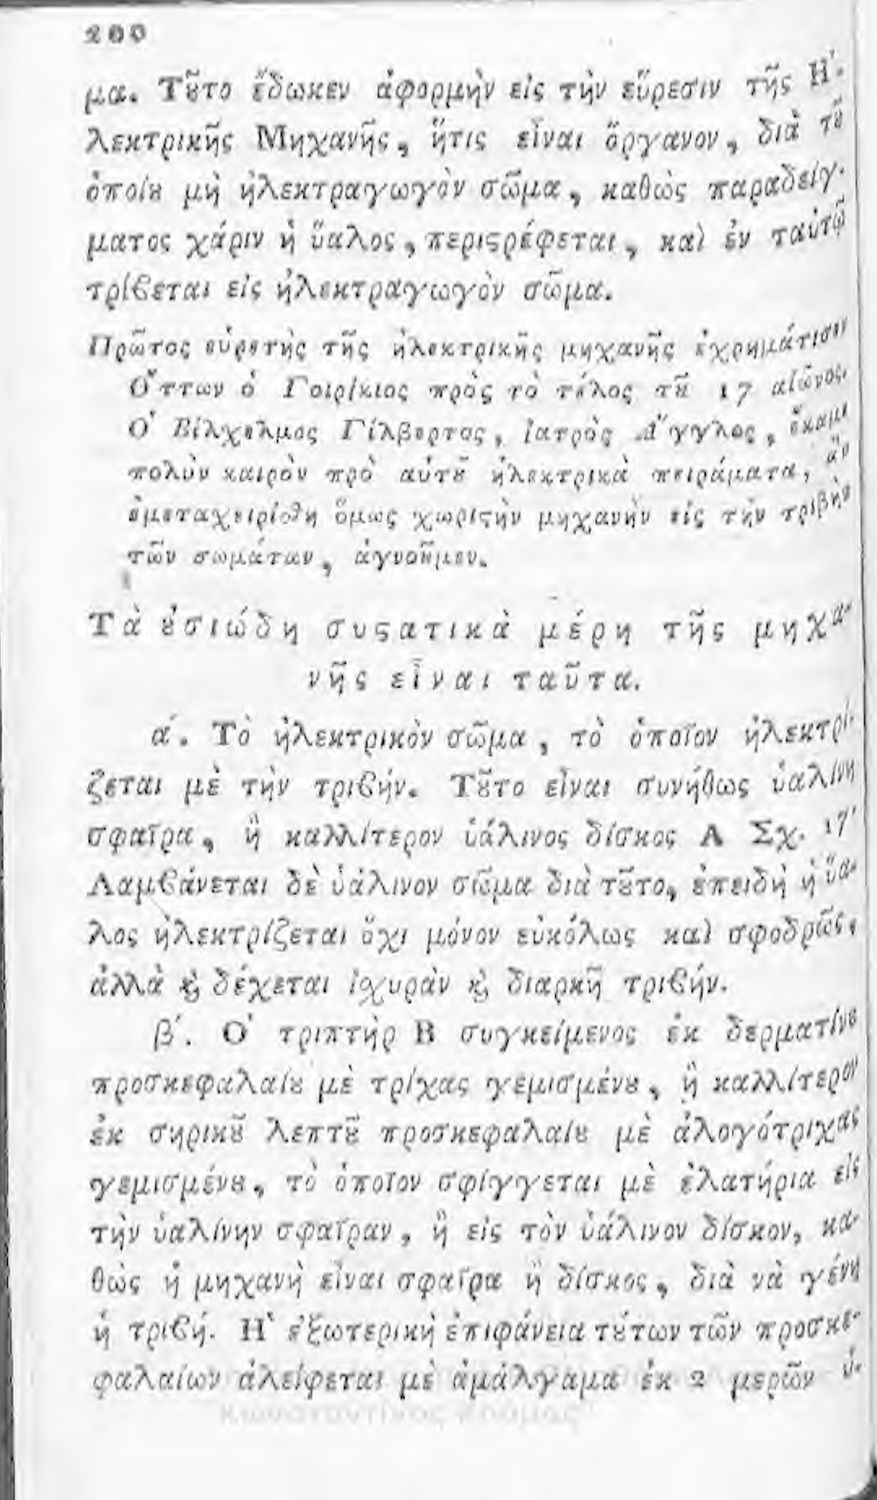 200
μα. Τȣ͂το ἔδωκεν ἀφορμὴν εἰς τὴν εὕρεσιν τῆς Ἠ-
λεκτρικῆς Μηχανῆς, ἥτις εἶναι ὄργανον, διὰ τȣ͂
ὁποίȣ μὴ ἠλεκτραγωγὸν σῶμα, καθὼς παραδείγ-
ματος χάριν ἡ ὕαλος, περιϛρέφεται, καὶ ἐν ταὐτῷ
τρίϐεται εἰς ἠλεκτραγωγὸν σῶμα.
Πρῶτος εὑρετὴς τῆς ἠλεκτρικῆς μηχανῆς ἐχρημάτισεν
Ὄττων ὁ Γοιρίκιος πρὸς τὸ τέλος τȣ͂ 17 αἰῶνος.
Ὁ Βίλχελμος Γίλβερτος, ἰατρὸς Ἄγγλος, ἔκαμε
πολὺν καιρὸν πρὸ αὐτȣ͂ ἠλεκτρικὰ πειράματα, ἂν
ἐμεταχειρίσθη ὅμως χωριϛὴν μηχανὴν εἰς τὴν τριβὴν
τῶν σωμάτων, ἀγνοȣ͂μεν.
Τὰ ȣ̓σιώδη συϛατικὰ μέρη τῆς μηχα-
νῆς εἶναι ταῦτα.
α´. Τὸ ἠλεκτρικὸν σῶμα, τὸ ὁποῖον ἠλεκτρί-
ζεται μὲ τὴν τριϐήν. Τȣ͂το εἶναι συνήθως ὑαλίνη
σφαῖρα, ἢ καλλίτερον ὑάλινος δίσκος Α Σχ. 17
Λαμϐάνεται δὲ ὑάλινον σῶμα διὰ τȣ͂το, ἐπειδὴ ἡ ὕα-
λος ἠλεκτρίζεται ὄχι μόνον εὐκόλως καὶ σφοδρῶς,
ἀλλὰ ϗ δέχεται ἰσχυρὰν ϗ διαρκῆ τριϐήν.
β´. Ὁ τριπτὴρ Β συγκείμενος ἐκ δερματίνȣ
προσκεφαλαίȣ μὲ τρίχας γεμισμένȣ, ἢ καλλίτερον
ἐκ σηρικȣ͂ λεπτȣ͂ προσκεφαλαίȣ μὲ ἀλογότριχας
γεμισμένȣ, τὸ ὁποῖον σφίγγεται μὲ ἐλατήρια εἰς
τὴν ὑαλίνην σφαῖραν, ἢ εἰς τὸν ὑάλινον δίσκον, κα-
θὼς ἡ μηχανὴ εἶναι σφαῖρα ἢ δίσκος, διὰ νὰ γένῃ
ἡ τριϐή. Ἡ ἐξωτερικὴ ἐπιφάνεια τȣ́των τῶν προσκε-
φαλαίων ἀλείφεται μὲ ἀμάλγαμα ἐκ 2 μερῶν ὑ-